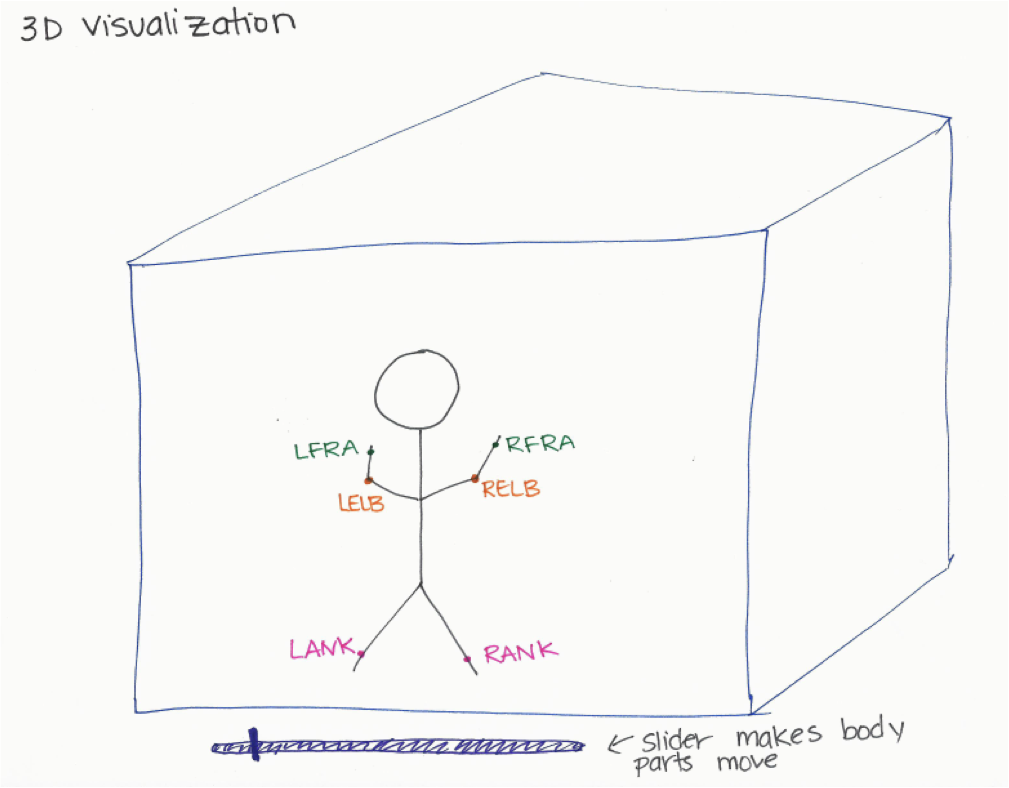 3D Visualization
LFRA
RFRA
LELB
RELB
LANK
RANK
← slider makes body
parts move